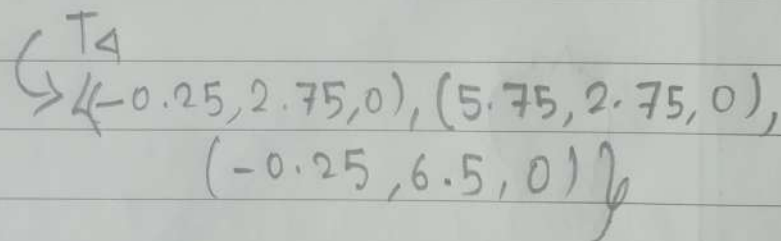 T◁
↳ {(-0.25, 2.75, 0), (5.75, 2.75, 0),
(-0.25, 6.5, 0)}